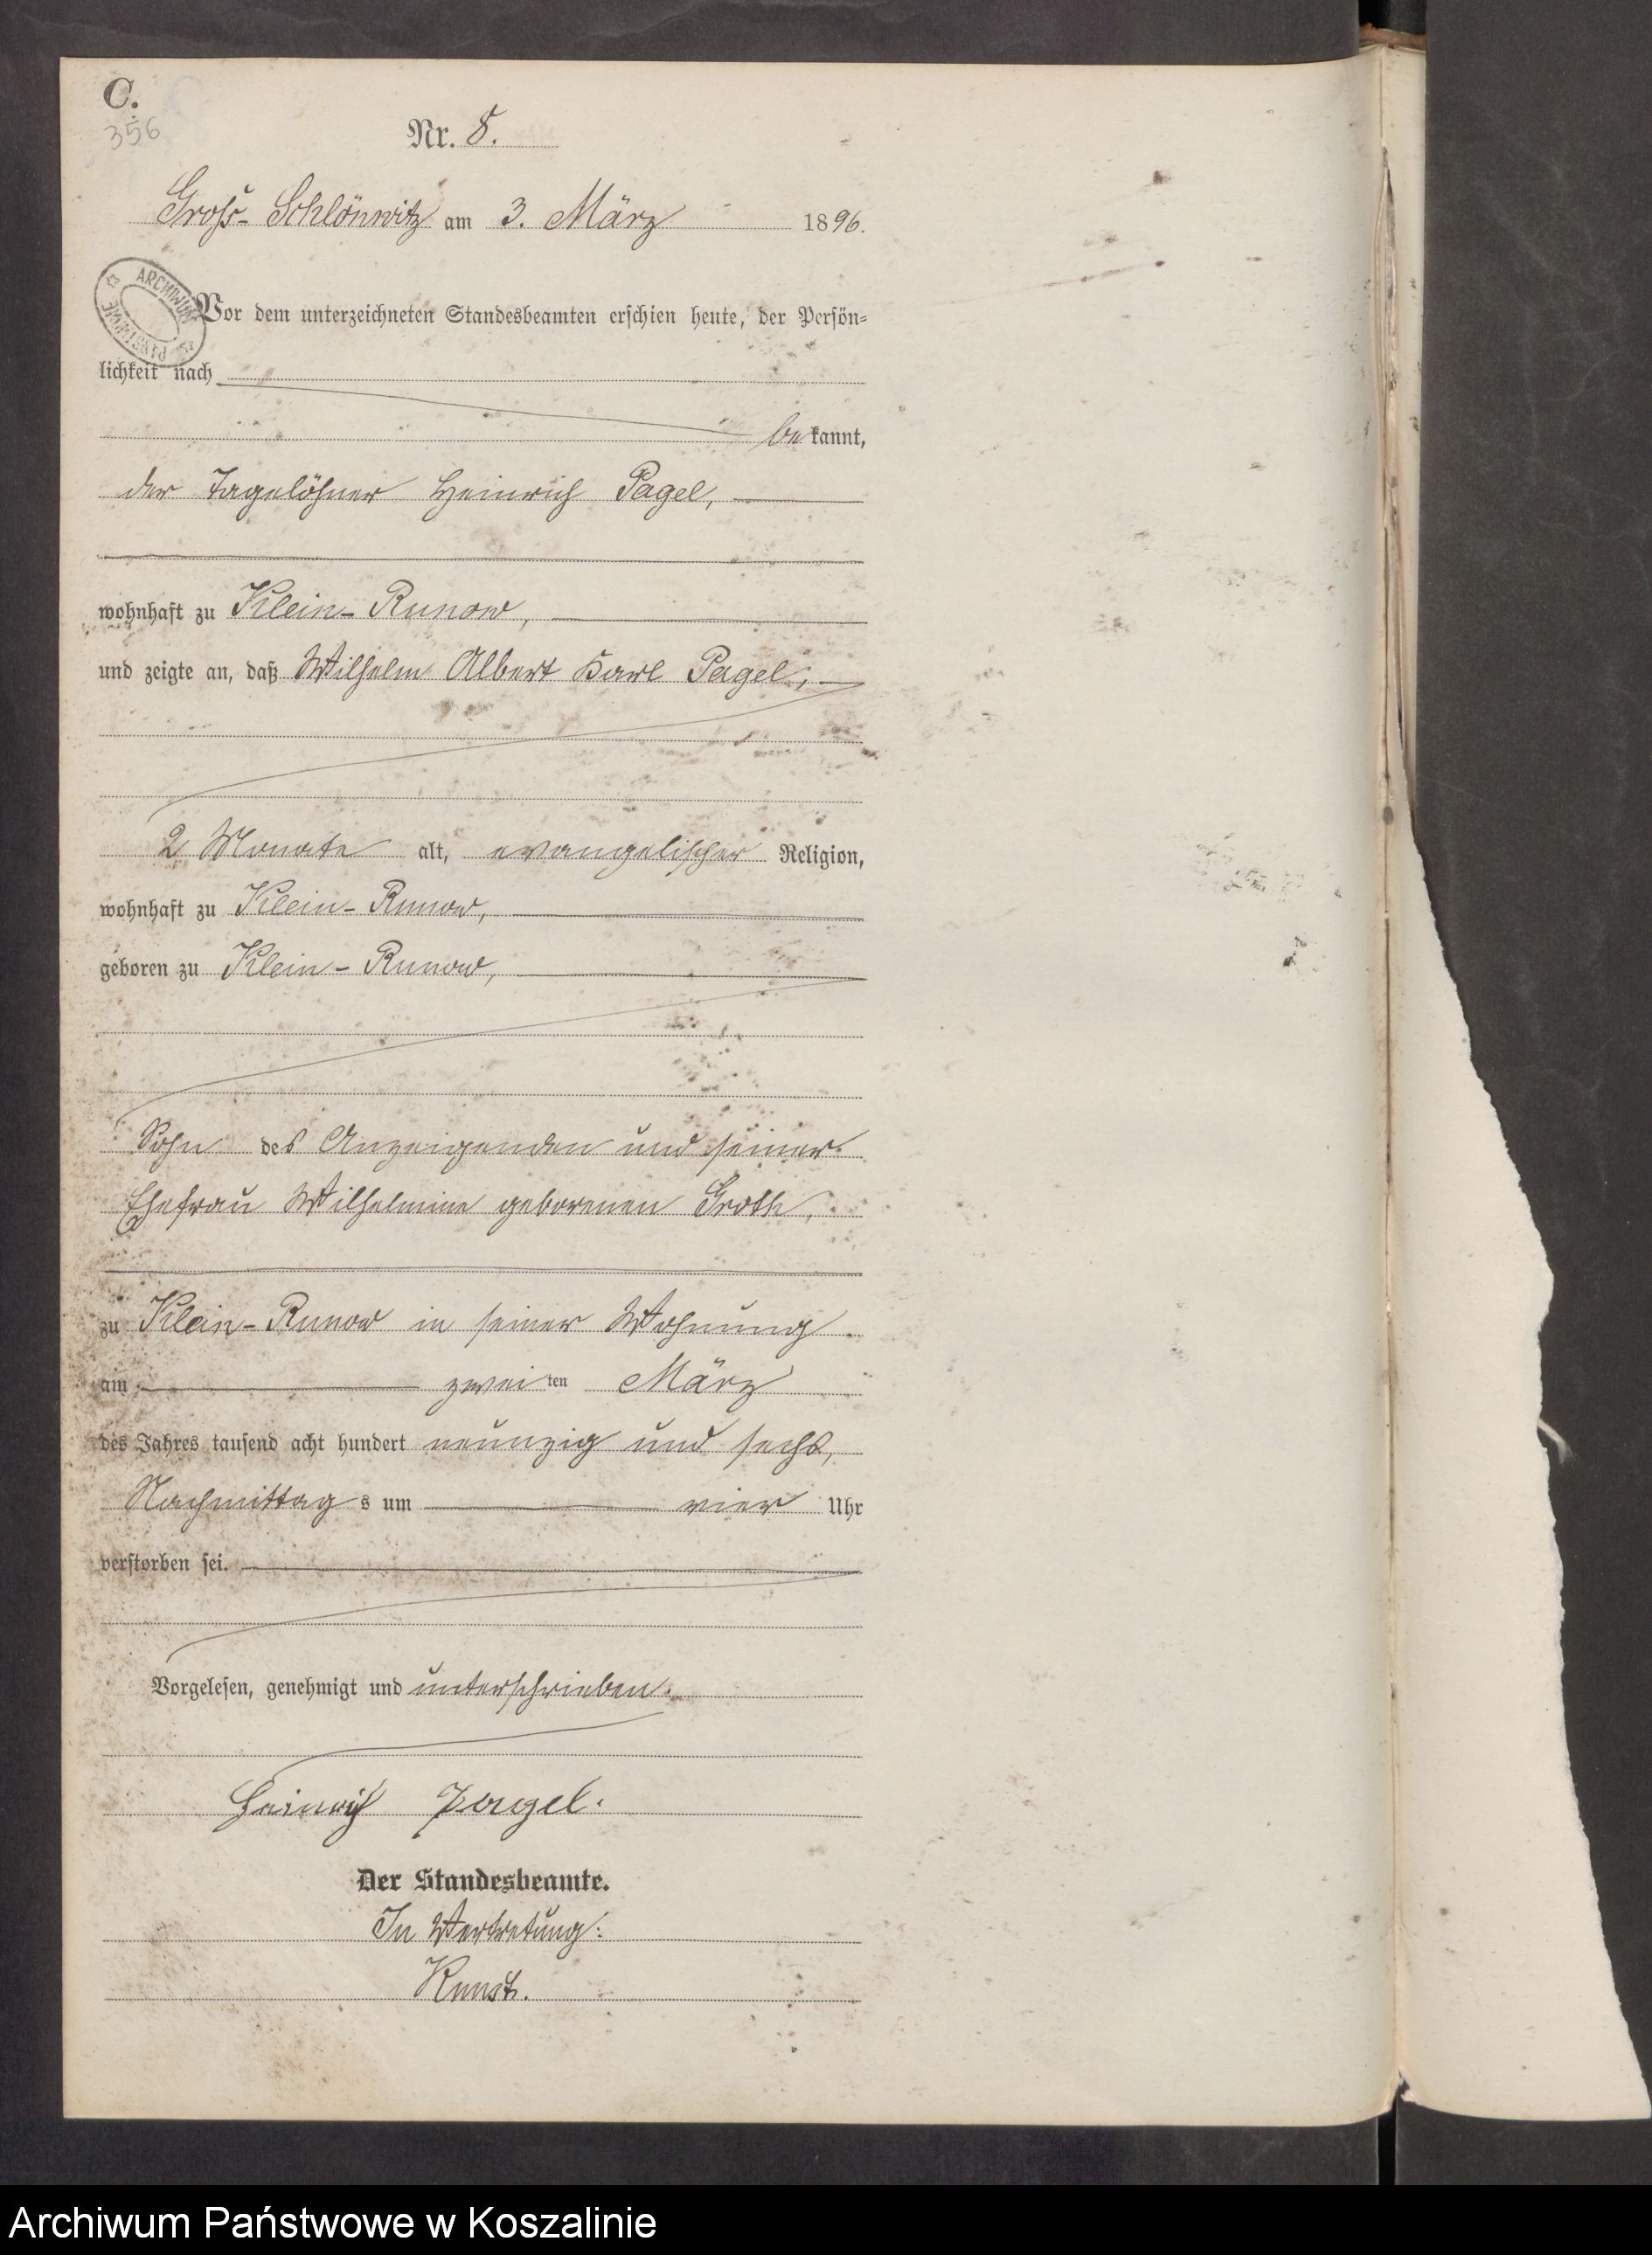 C.
356
Nr. 8.
Groß-Schlönwitz am 3. März 1896.
ARCHIWUM PAŃSTWOWE
Vor dem unterzeichneten Standesbeamten erschien heute, der Persön-
lichkeit nach
bekannt,
der Tagelöhner Heinrich Pagel,
wohnhaft zu Klein-Runow,
und zeigte an, daß Wilhelm Albert Karl Pagel,
2 Monate alt, evangelischer Religion,
wohnhaft zu Klein-Runow,
geboren zu Klein-Runow,
Sohn des Anzeigenden und seiner
Ehefrau Wilhelmine geborenen Groth,
zu Klein-Runow in seiner Wohnung
am zweiten März
des Jahres tausend acht hundert neunzig und sechs,
Nachmittags um vier Uhr
verstorben sei.
Vorgelesen, genehmigt und unterschrieben.
Heinrich Pagel.
Der Standesbeamte.
In Vertretung:
Kunst.
Archiwum Państwowe w Koszalinie